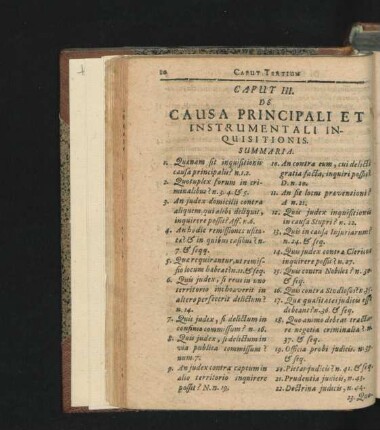 20 CAPUT TERTIUM
CAPUT III.
DE
CAUSA PRINCIPALI ET
INSTRUMENTALI IN-
QUISITIONIS.
SUMMARIA.
1. Quænam sit inquisitionis
causa principalis? n.1.2.
2. Quotuplex forum in cri-
minalibus? n. 3. 4. & 5.
3. An judex domicilii contra
aliquem, qui alibi deliquit,
inquirere possit? Aff. n.6.
4. An hodie remissiones usita-
tæ? & in quibus casibus? n.
7. & seqq.
5. Quæ requirantur, ut remis-
sio locum habeat? n.11. & seq.
6. Quis judex, si reus in uno
territorio inchoaverit in
altero perfecerit delictum?
n. 14.
7. Quis judex, si delictum in
confinio commissum? n. 16.
8. Quis judex, si delictum in
via publica commissum?
num. 7.
9. An judex contra captum in
alio territorio inquirere
possit? N. n. 19.
10. An contra eum, cui delicti
gratia facta, inquiri possit?
D. n. 20.
11. An sit locus præventioni?
A n. 21.
12. Quis judex inquisitionis
in causa Stupri? n. 22.
13. Quis in causa Injuriarum?
n. 24. & seq.
14. Quis judex contra Clericos
inquirere possit? n. 27.
15. Quis contra Nobiles? n. 30.
& seq.
16. Quis contra Studiosos? n. 35.
17. Qua qualitates judicis esse
debeant? n. 36. & seq.
18. Quo animo debeat tracta-
re negotia criminalia? n.
37. & seq.
19. Officia probi judicis. n. 39.
& seq.
20. Pietas judicis? n. 41. & seq.
21. Prudentia judicis, n. 43.
22. Doctrina judicis, n. 44.